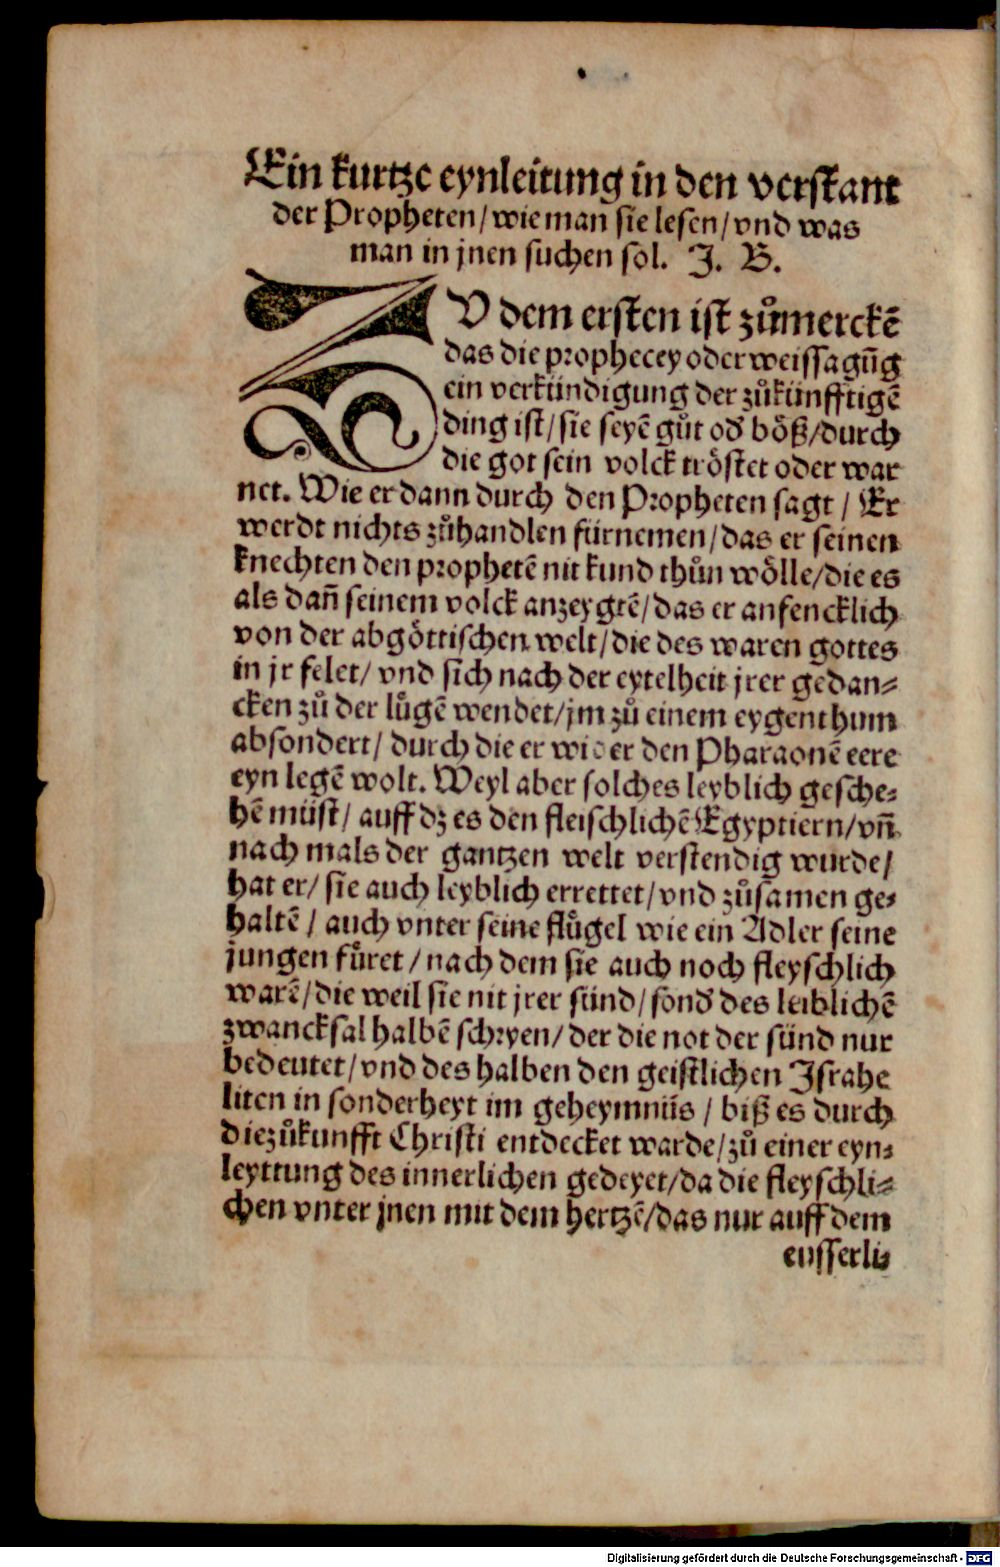 Ein kurtze eynleitung in den verstant
der Propheten/wie man sie lesen/vnd was
man in jnen suchen sol. J. B.
ZV dem ersten ist zůmerckē
das die prophecey oder weissagūg
ein verkündigung der zůkünfftigē
ding ist/sie seyē gůt od̕ böß/durch
die got sein volck tröstet oder war
net. Wie er dann durch den Propheten sagt / Er
werdt nichts zůhandlen fürnemen/das er seinen
knechten den prophetē nit kund thůn wölle/die es
als dañ seinem volck anzeygtē/das er anfencklich
von der abgöttischen welt/die des waren gottes
in jr felet/ vnd sich nach der eytelheit jrer gedan⸗
cken zů der lůgē wendet/jm zů einem eygenthum
absondert/ durch die er wider den Pharaonē eere
eyn legē wolt. Weyl aber solches leyblich gesche⸗
hē müst/ auff dz es den fleischlichē Egyptiern/vñ
nach mals der gantzen welt verstendig wurde/
hat er/ sie auch leyblich errettet/vnd zůsamen ge⸗
haltē / auch vnter seine flůgel wie ein Adler seine
jungen fůret / nach dem sie auch noch fleyschlich
warē/die weil sie nit jrer sünd/sond̕ des leiblichē
zwancksal halbē schryen/ der die not der sünd nur
bedeutet/vnd des halben den geistlichen Israhe
liten in sonderheyt im geheymnüs / biß es durch
die zůkunfft Christi entdecket warde/zů einer eyn⸗
leyttung des innerlichen gedeyet/da die fleyschli⸗
chen vnter jnen mit dem hertzē/das nur auff dem
eusserli⸗
Digitalisierung gefördert durch die Deutsche Forschungsgemeinschaft - DFG